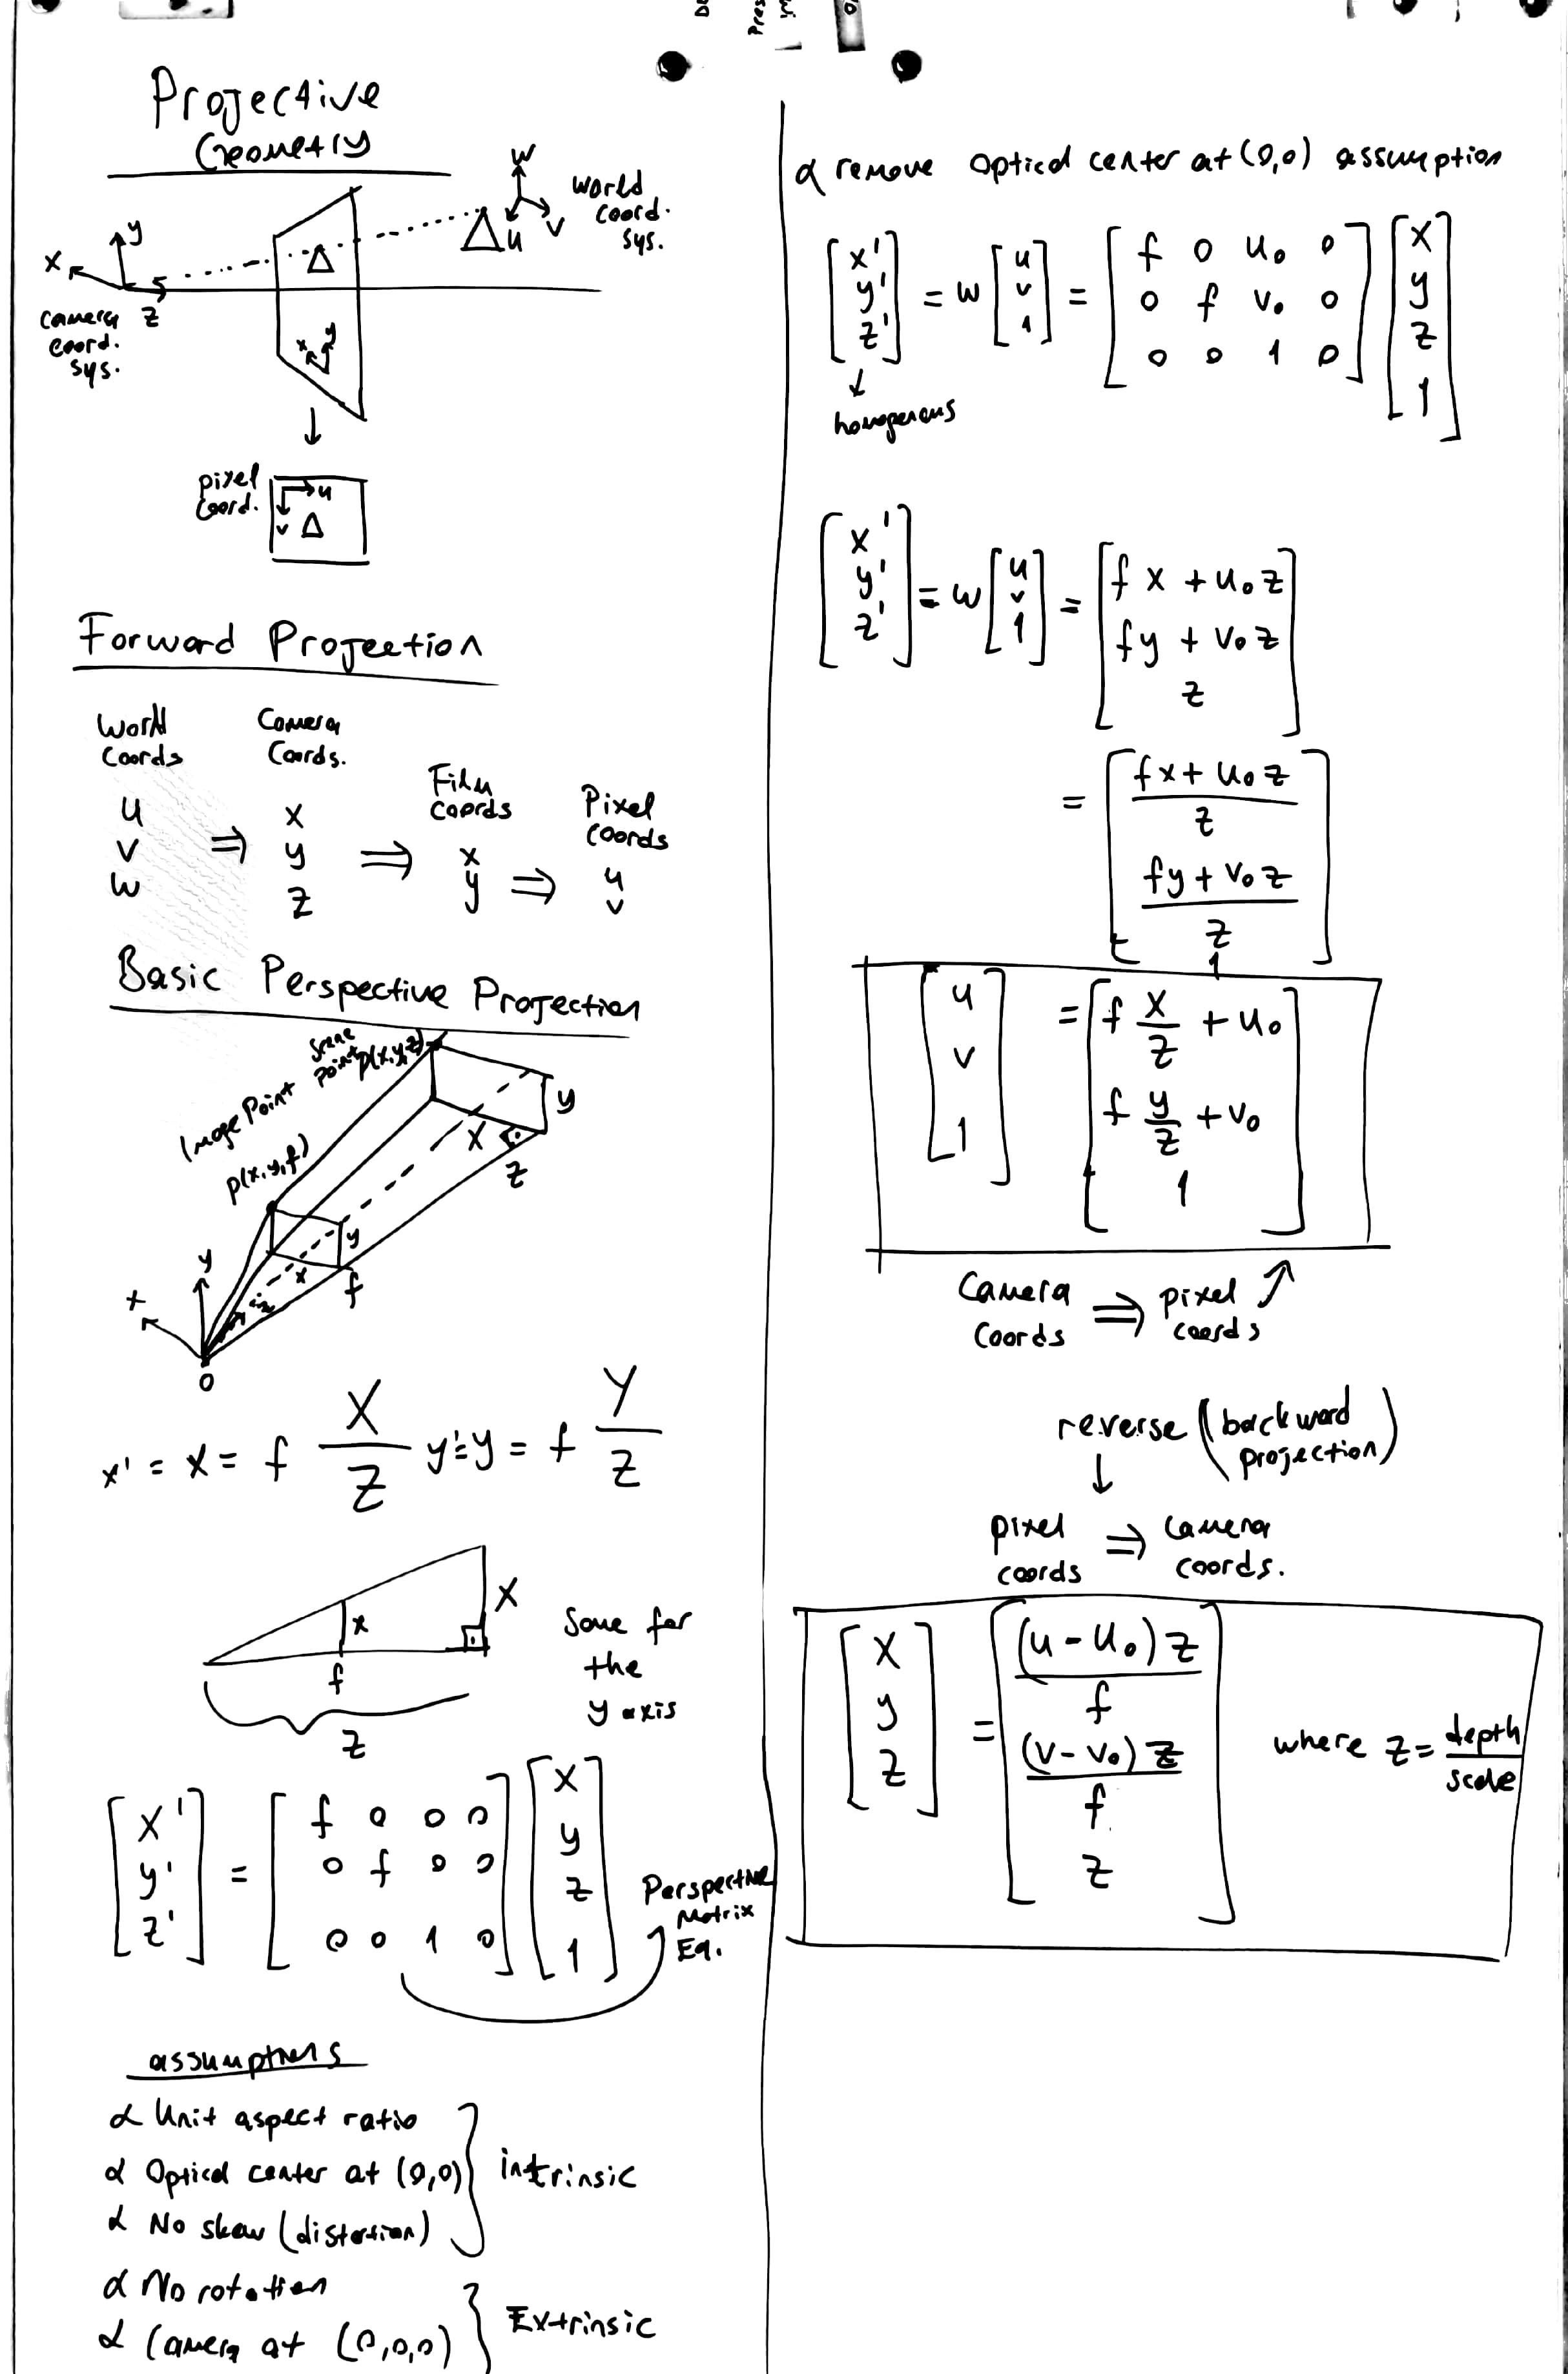 Projective
Geometry
W
World
coord.
sys.
V
u
y
x
z
camera
coord.
sys.
x
y
pixel
coord.
u
v
Forward Projection
World
Coords
Camera
Coords.
Film
coords
Pixel
coords
u
v
w
⇒
x
y
z
⇒
x
y
⇒
u
v
Basic Perspective Projection
scene
point P(x,y,z)
Image Point
p(x,y,f)
y
X
z
y
x
f
y
x
0
x' = x = f X/Z y' = y = f Y/Z
X
x
f
Z
Same for
the
y axis
[x' y' z'] = [f 0 0 0; 0 f 0 0; 0 0 1 0] [x y z 1]
Perspective
Matrix
Eq.
α Unit aspect ratio
α Optical center at (0,0)
α No skew (distortion)
intrinsic
α No rotation
α Camera at (0,0,0)
Extrinsic
α remove optical center at (0,0) assumption
[x' y' z'] = w [u v 1] = [f 0 u₀ 0; 0 f v₀ 0; 0 0 1 0] [x y z 1]
[x' y' z'] = w [u v 1] = [f x + u₀ z; f y + v₀ z; z]
= [(f x + u₀ z)/z; (f y + v₀ z)/z; 1]
[u v 1] = [f x/z + u₀; f y/z + v₀; 1]
Camera
Coords
⇒
pixel
coords
reverse (backward
projection)
pixel
coords
⇒
camera
coords.
[x y z] = [(u - u₀) z / f; (v - v₀) z / f; z]
where z = depth/scale